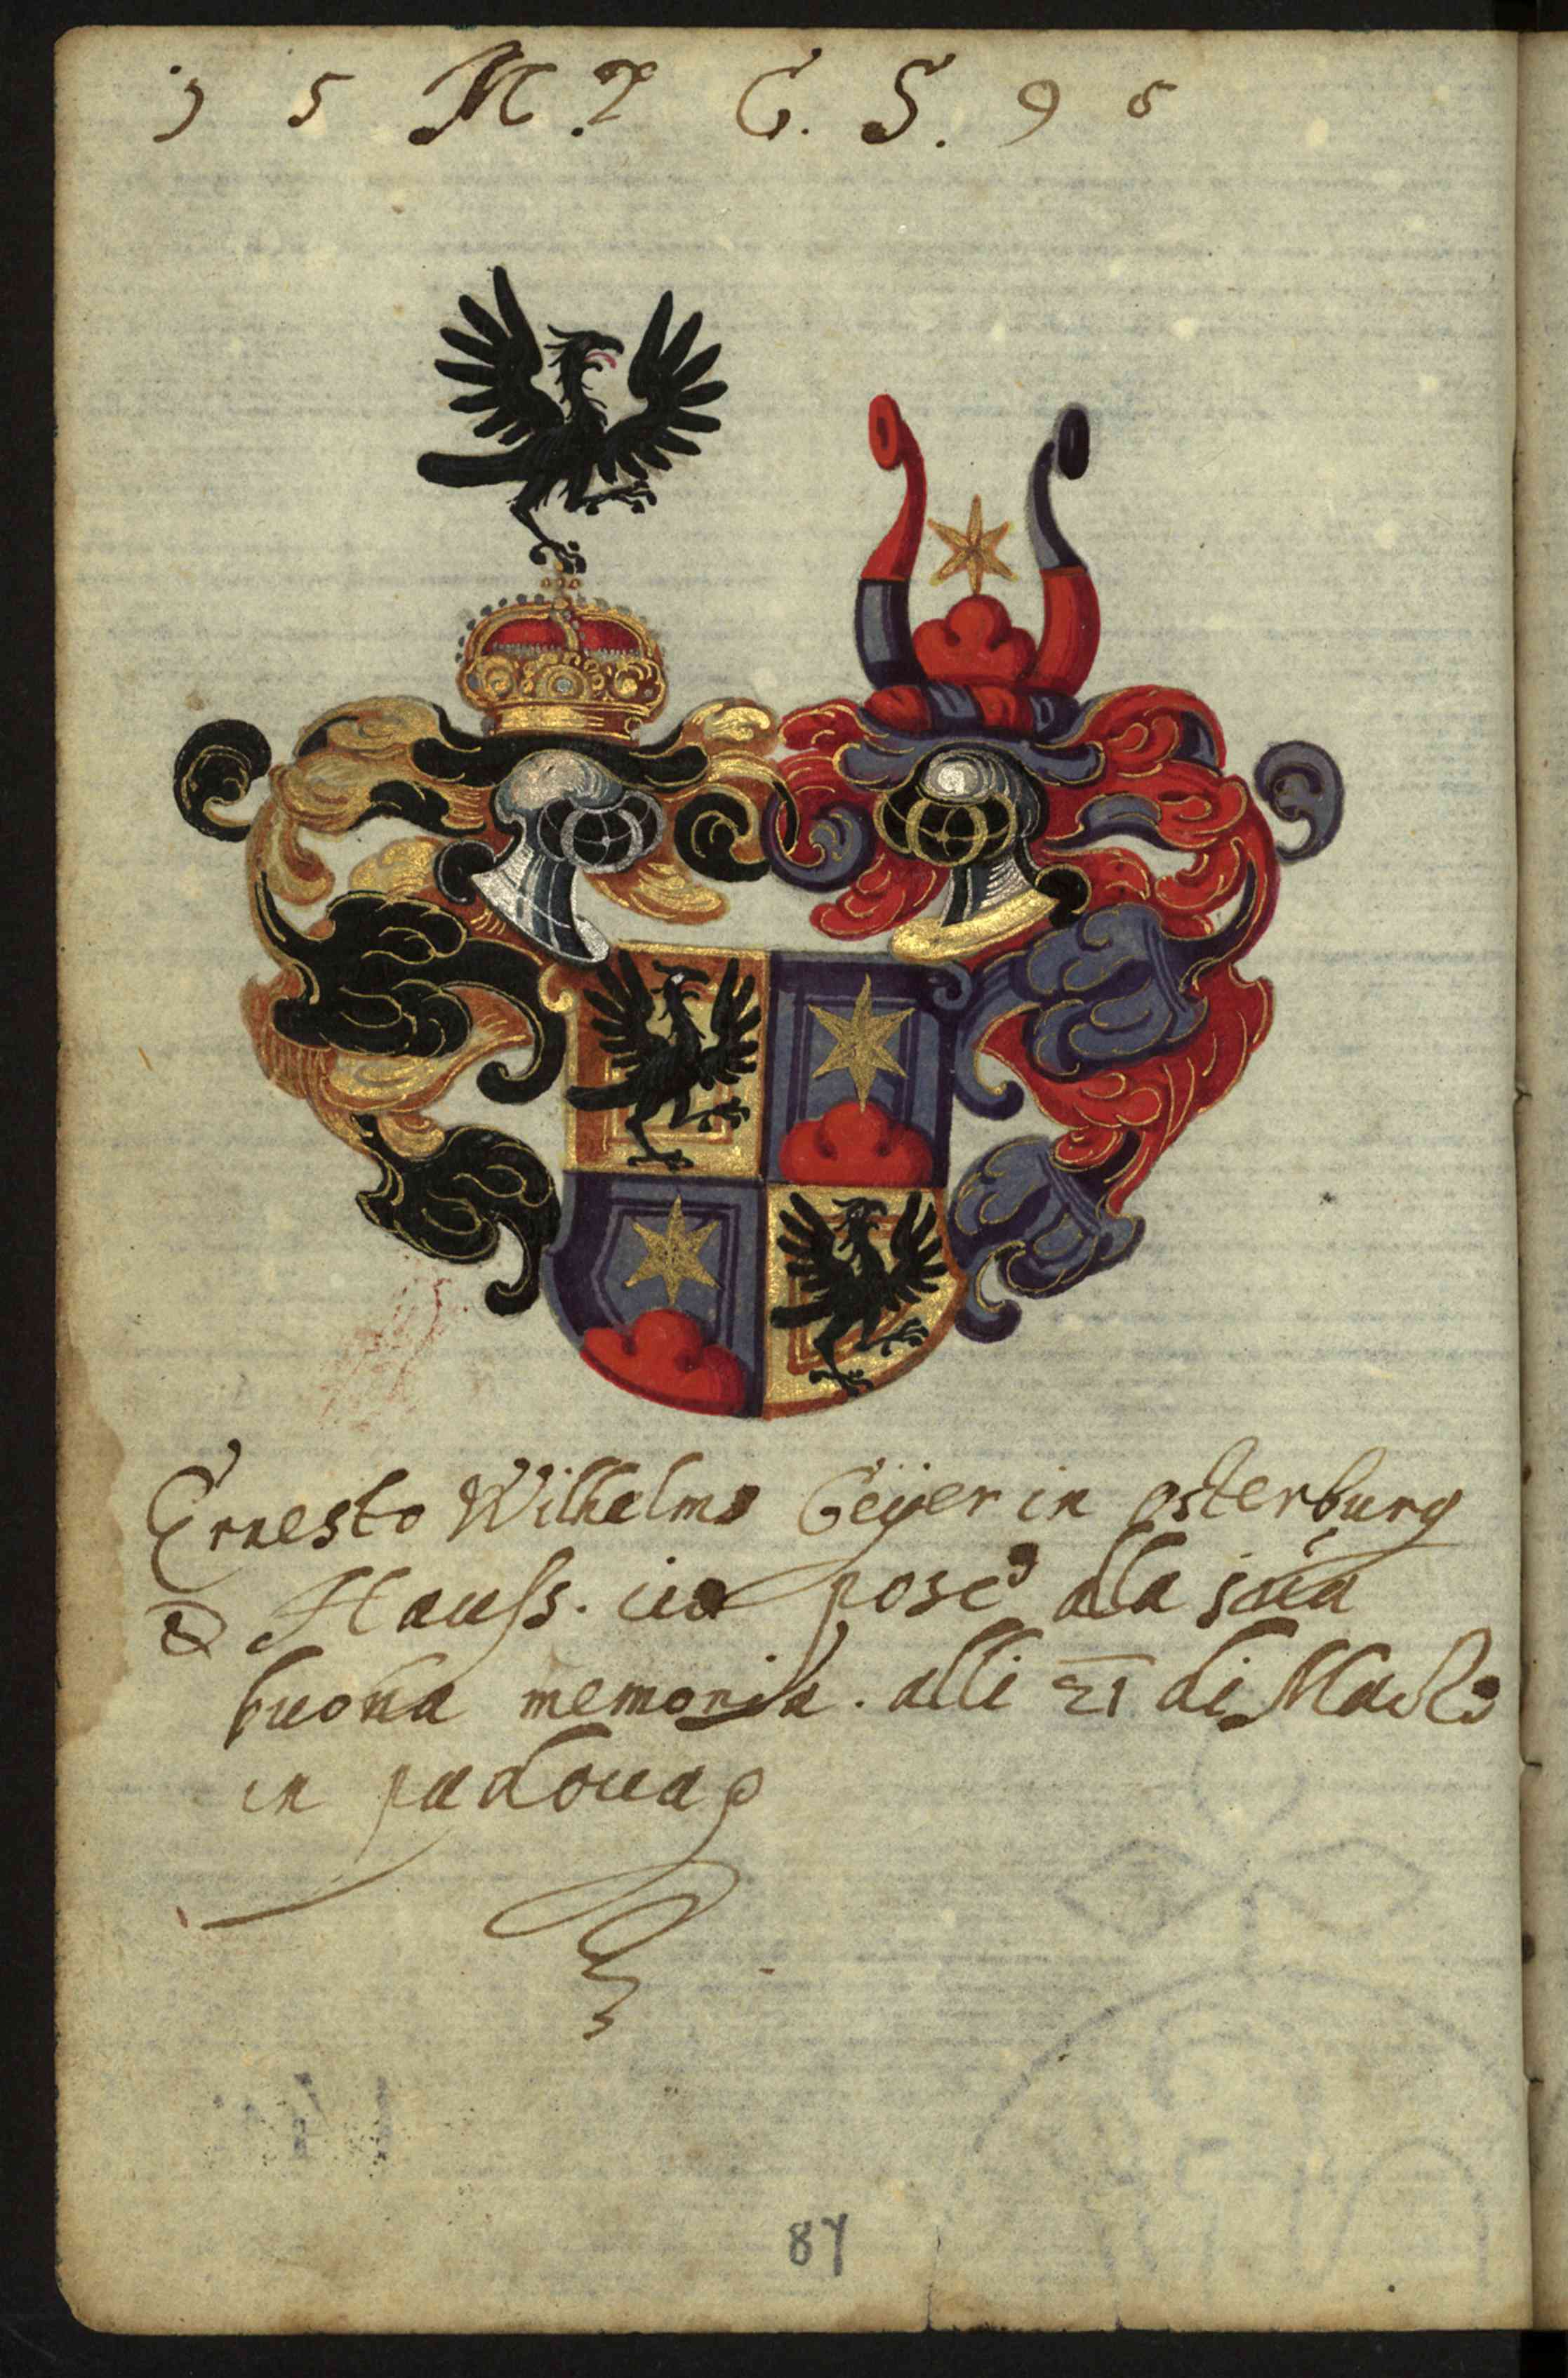 1 5 M. T G. S. 9 8
Ernesto Wilhelmo Geÿer in osterburg
& Hauss. posе alla sua
buona memoria. alli 21 di
in padoua
87